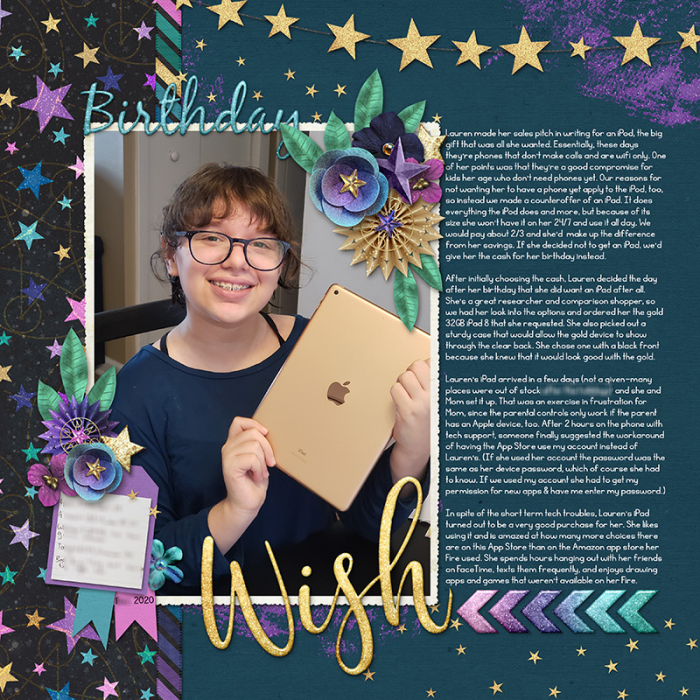 Birthday
Lauren made her sales pitch in writing for an iPod, the big
gift that was all she wanted. Essentially, these days
they're phones that don't make calls and are wifi only. One
of her points was that they're a good compromise for
kids her age who don't need phones yet. Our reasons for
not wanting her to have a phone yet apply to the iPod, too,
so instead we made a counteroffer of an iPad. It does
everything the iPod does and more, but because of its
size she won't have it on her 24/7 and use it all day. We
would pay about 2/3 and she'd make up the difference
from her savings. If she decided not to get an iPad, we'd
give her the cash for her birthday instead.
After initially choosing the cash, Lauren decided the day
after her birthday that she did want an iPad after all.
She's a great researcher and comparison shopper, so
we had her look into the options and ordered her the gold
32GB iPad 8 that she requested. She also picked out a
sturdy case that would allow the gold device to show
through the clear back. She chose one with a black front
because she knew that it would look good with the gold.
Lauren's iPad arrived in a few days (not a given-many
places were out of stock and she and
Mom set it up. That was an exercise in frustration for
Mom, since the parental controls only work if the parent
has an Apple device, too. After 2 hours on the phone with
tech support, someone finally suggested the workaround
of having the App Store use my account instead of
Lauren's. (If she used her account the password was the
same as her device password, which of course she had
to know. If we used my account she had to get my
permission for new apps & have me enter my password.)
In spite of the short term tech troubles, Lauren's iPad
turned out to be a very good purchase for her. She likes
using it and is amazed at how many more choices there
are on this App Store than on the Amazon app store her
Fire used. She spends hours hanging out with her friends
on FaceTime, texts them frequently, and enjoys drawing
apps and games that weren't available on her Fire.
iPad
2020
Wish